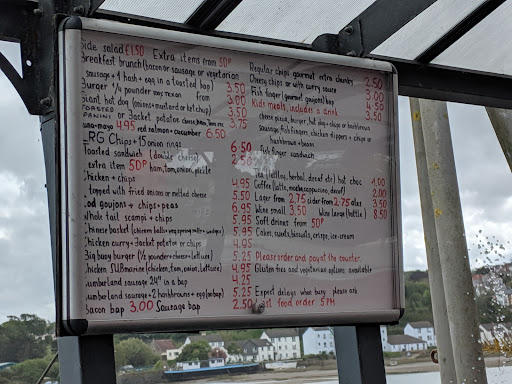 Side salad £1.50 Extra items from 50p
Breakfast brunch (bacon or sausage or vegetarian
sausage + 1 hash + egg in a toasted bap) 3.50
Burger ¼ pounder from 3.00
Giant hot dog (onions + mustard or ketchup) 3.50
TOASTED PANINI or Jacket potato 3.75
tuna-mayo 4.95 red salmon + cucumber 6.50
LRG Chips + 15 onion rings 6.50
Toasted sandwich (double cheese) 2.50
extra item 50p ham, tom, onion, pickle
Chicken + chips 4.95
topped with fried onions or melted cheese 5.50
Cod goujons + chips + peas 6.95
Whole tail scampi + chips 5.95
Chinese basket 5.95
Chicken curry + Jacket potato or chips 4.95
Big boy burger (½ pounder + cheese + lettuce) 5.25
Chicken SUBmarine (chicken, tom, onion, lettuce) 4.95
Cumberland sausage 24" in a bap 4.25
Cumberland sausage + 2 hashbrowns + egg (no bap) 5.25
Bacon bap 3.00 Sausage bap 2.50
Regular chips gourmet extra chunky 2.50
Cheese chips or with curry sauce 3.00
Fish finger (gourmet goujons) bap 4.50
Kids meals, includes a drink 3.50
cheese pizza, burger, hot dog + chips or hashbrown
sausage, fish fingers, chicken dippers + chips or
hashbrown + beans
fish finger sandwich
Tea (latte, herbal, decaf etc) hot choc 1.00
Coffee (latte, mocha, cappuccino, decaf) 2.00
Lager from 2.75 cider from 2.75 ales 3.50
Wine small 3.50 Wine large (bottle) 8.50
Soft drinks from 50p
Cakes, sweets, biscuits, crisps, ice-cream
Please order and pay at the counter.
Gluten free and vegetarian options available
Expect delays when busy, please ask
Last food order 5PM